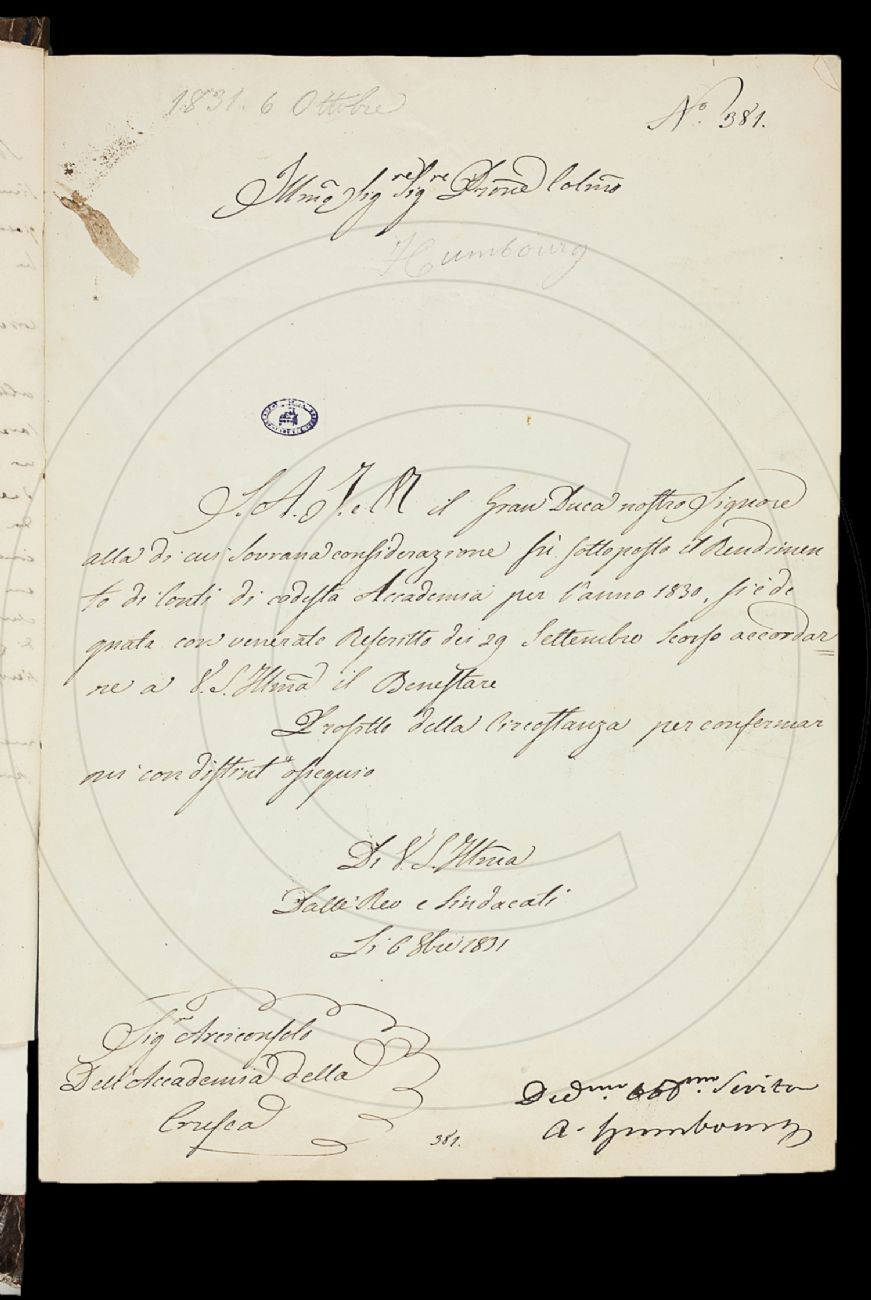 1831. 6 Ottobre
N.º 381.
Illmo Sig.re Sig.re Prone Colmo
Humbourg
S. A. I. e R. il Gran Duca nostro Signore
alla di cui Sovrana considerazione fù sottoposto il Rendimen
to di Conti di codesta Accademia per l'anno 1830, si è de
gnata con venerato Rescritto dei 29 Settembre scorso accordar
ne a V. S. Illma il Benestare
Profitto della Circostanza per confermar
mi con distinto ossequio
Di V. S. Illma
Dalle Rev e Sindacati
Li 6 8bre 1831
Sig.r Arciconsolo
Dell'Accademia della
Crusca
381.
Dedmo Obbmo Servitor
A. Humbourg